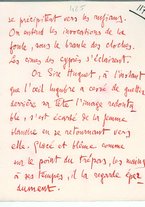 1425
se précipitent vers les rufians.
On entend les invocations de la
foule, sous le branle des cloches.
Les cimes des cyprès s'éclairent.
Or Sire Huguet, à l'instant
que l'œil lugubre a cessé de
derrière sa tête l'image redouta
ble, s'est écarté de la femme
en se retournant vers
elle. Glacé et blême comme
sur le point du trépas, les mains
à ses tempes, il la regarde éper
dument.